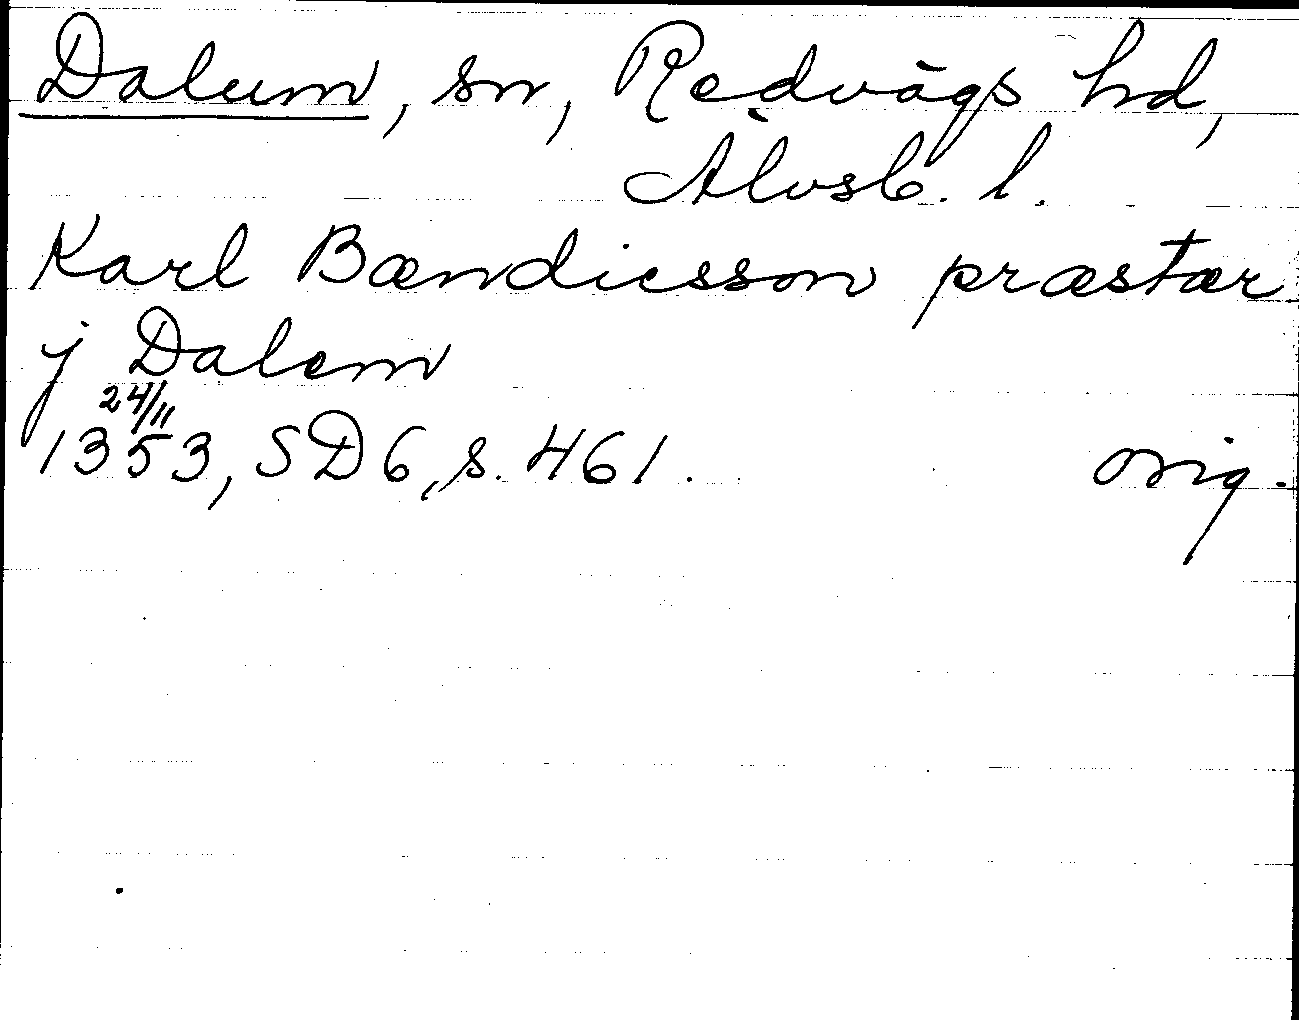 Dalum, sn, Redvägs hd,
Älvsb. l.
Karl Bændicsson præstær
j Dalem
24/11
1353, SD 6, s. 461.
orig.